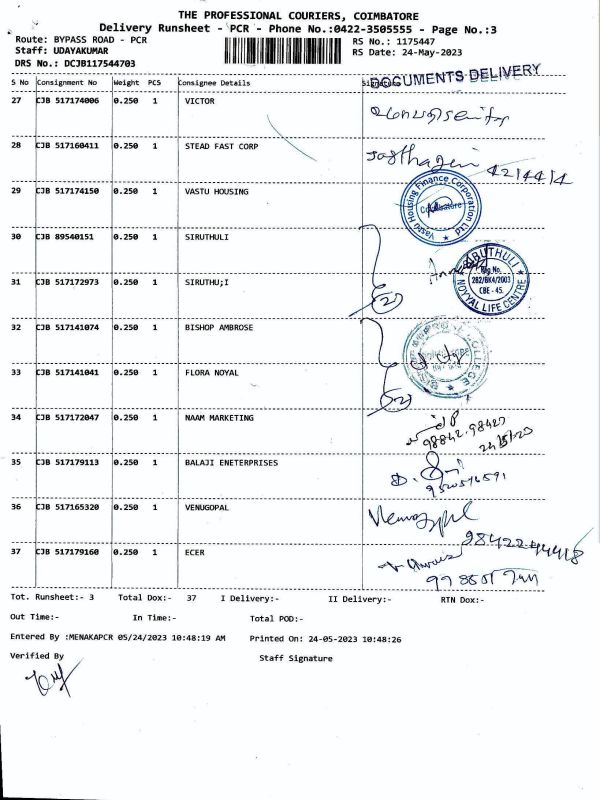 THE PROFESSIONAL COURIERS, COIMBATORE
Delivery Runsheet - PCR - Phone No.:0422-3505555 - Page No.:3
Route: BYPASS ROAD - PCR RS No.: 1175447
Staff: UDAYAKUMAR RS Date: 24-May-2023
DRS No.: DCJB117544703
DOCUMENTS DELIVERY
S No Consignment No Weight PCS Consignee Details Signature
27 CJB 517174006 0.250 1 VICTOR
28 CJB 517160411 0.250 1 STEAD FAST CORP
29 CJB 517174150 0.250 1 VASTU HOUSING
Vastu Housing Finance Corporation Ltd Coimbatore
30 CJB 89540151 0.250 1 SIRUTHULI
31 CJB 517172973 0.250 1 SIRUTHU;I
SIRUTHULI Reg No. 282/BK4/2003 CBE - 45. NOYYAL LIFE CENTRE
32 CJB 517141074 0.250 1 BISHOP AMBROSE
COLLEGE
33 CJB 517141041 0.250 1 FLORA NOYAL
34 CJB 517172047 0.250 1 NAAM MARKETING
35 CJB 517179113 0.250 1 BALAJI ENETERPRISES
36 CJB 517165320 0.250 1 VENUGOPAL
37 CJB 517179160 0.250 1 ECER
Tot. Runsheet:- 3 Total Dox:- 37 I Delivery:- II Delivery:- RTN Dox:-
Out Time:- In Time:- Total POD:-
Entered By :MENAKAPCR 05/24/2023 10:48:19 AM Printed On: 24-05-2023 10:48:26
Verified By Staff Signature